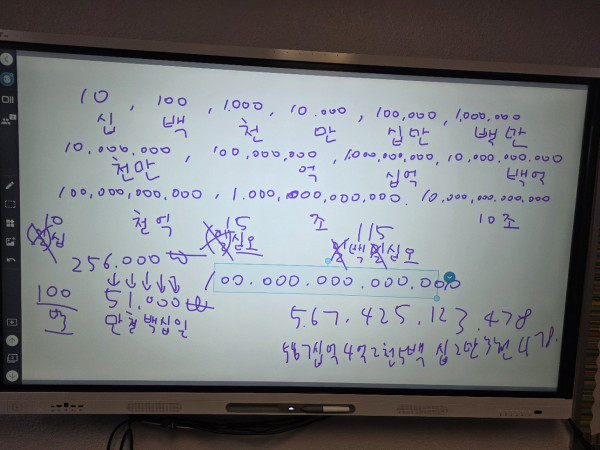 10 , 100 , 1.000 , 10.000 , 100,000 , 1,000,000
십 백 천 만 십만 백만
10,000.000 , 100,000,000 , 1,000,000,000 , 10,000,000.000
천만 억 십억 백억
100,000,000,000 , 1.000,000,000,000. 10,000,000,000,000
천억 조 10조
10 15 115
일십 일십오 일백일십오
256.000 ₩
100.000.000.000.000
100
백
51.000 ₩
만 천 백 십 일
5.67.425.123.478